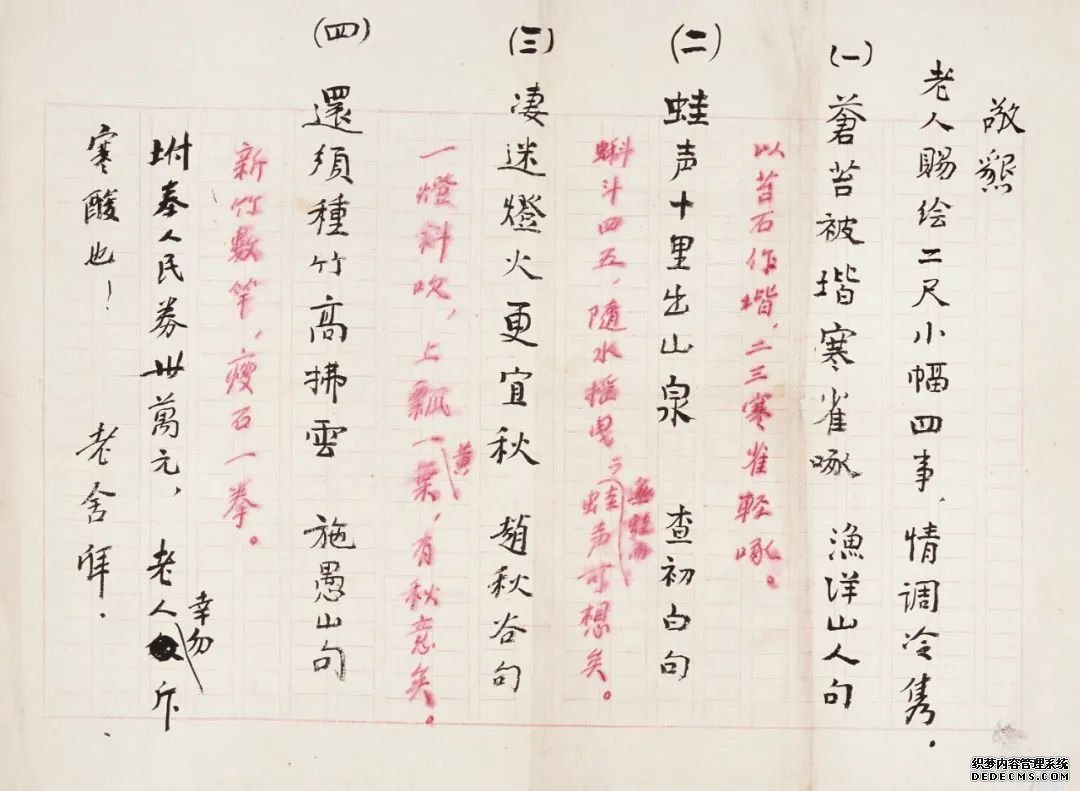 敬懇
老人賜绘二尺小幅四事，情调冷隽．
(一) 蒼苔被堦寒雀啄 漁洋山人句
以苔石作堦，二三寒雀輕啄。
(二) 蛙声十里出山泉 查初白句
蝌斗四五，随水摇曳，無蛙而蛙声可想矣。
(三) 凄迷燈火更宜秋 趙秋谷句
一燈斜吹，上飄一黄葉，有秋意矣。
(四) 還須種竹高拂雲 施愚山句
新竹數竿，瘦石一拳。
坿奉人民券卅萬元，老人幸勿斥
寒酸也！ 老舍拜．
织梦内容管理系统
DEDECMS.COM